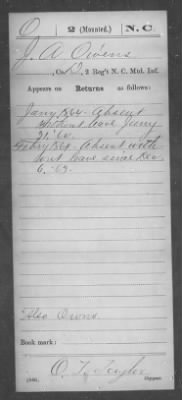 O 2 (Mounted.) N.C.
J. A. Owens
, Co. D, 2 Reg't N. C. Mtd. Inf.
Appears on Returns as follows:
Jany 1864 - Absent
without leave Jany
21, '64.
Feby 1864 - Absent with
out leave since Dec
6, - 63.
Also Owens
Book mark:
O. L. Taylor
(546) Copyist.